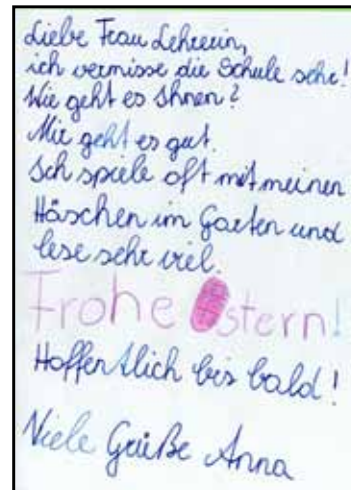 Liebe Frau Lehrerin,
ich vermisse die Schule sehr!
Wie geht es Ihnen?
Mir geht es gut.
Ich spiele oft mit meinen
Häschen im Garten und
lese sehr viel.
Frohe Ostern!
Hoffentlich bis bald!
Viele Grüße Anna